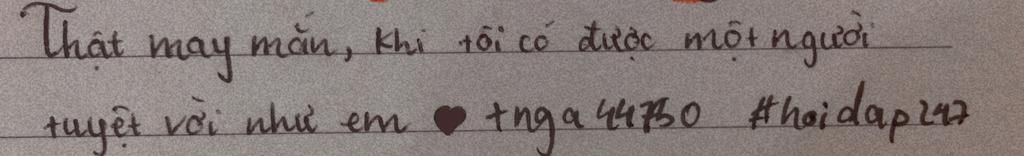 Thật may mắn, khi tôi có được một người
tuyệt vời như em ♥ +nga44750 #hoidap247